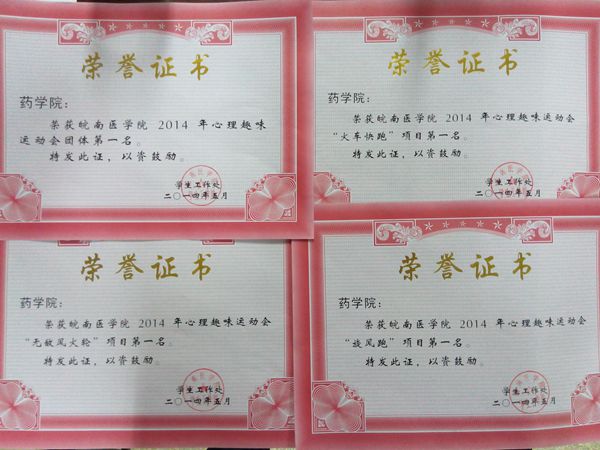 荣誉证书
药学院：
荣获皖南医学院 2014 年心理趣味
运动会团体第一名。
特发此证，以资鼓励。
学生工作处
二〇一四年五月
荣誉证书
药学院：
荣获皖南医学院 2014 年心理趣味运动会
“火车快跑”项目第一名。
特发此证，以资鼓励。
学生工作处
二〇一四年五月
荣誉证书
药学院：
荣获皖南医学院 2014 年心理趣味运动会
“无敌风火轮”项目第一名。
特发此证，以资鼓励。
学生工作处
二〇一四年五月
荣誉证书
药学院：
荣获皖南医学院 2014 年心理趣味运动会
“旋风跑”项目第一名。
特发此证，以资鼓励。
学生工作处
二〇一四年五月